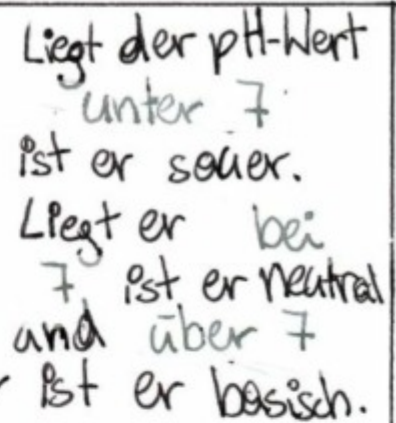 Liegt der pH-Wert
unter 7
ist er sauer.
Liegt er bei
7 ist er neutral
und über 7
ist er basisch.